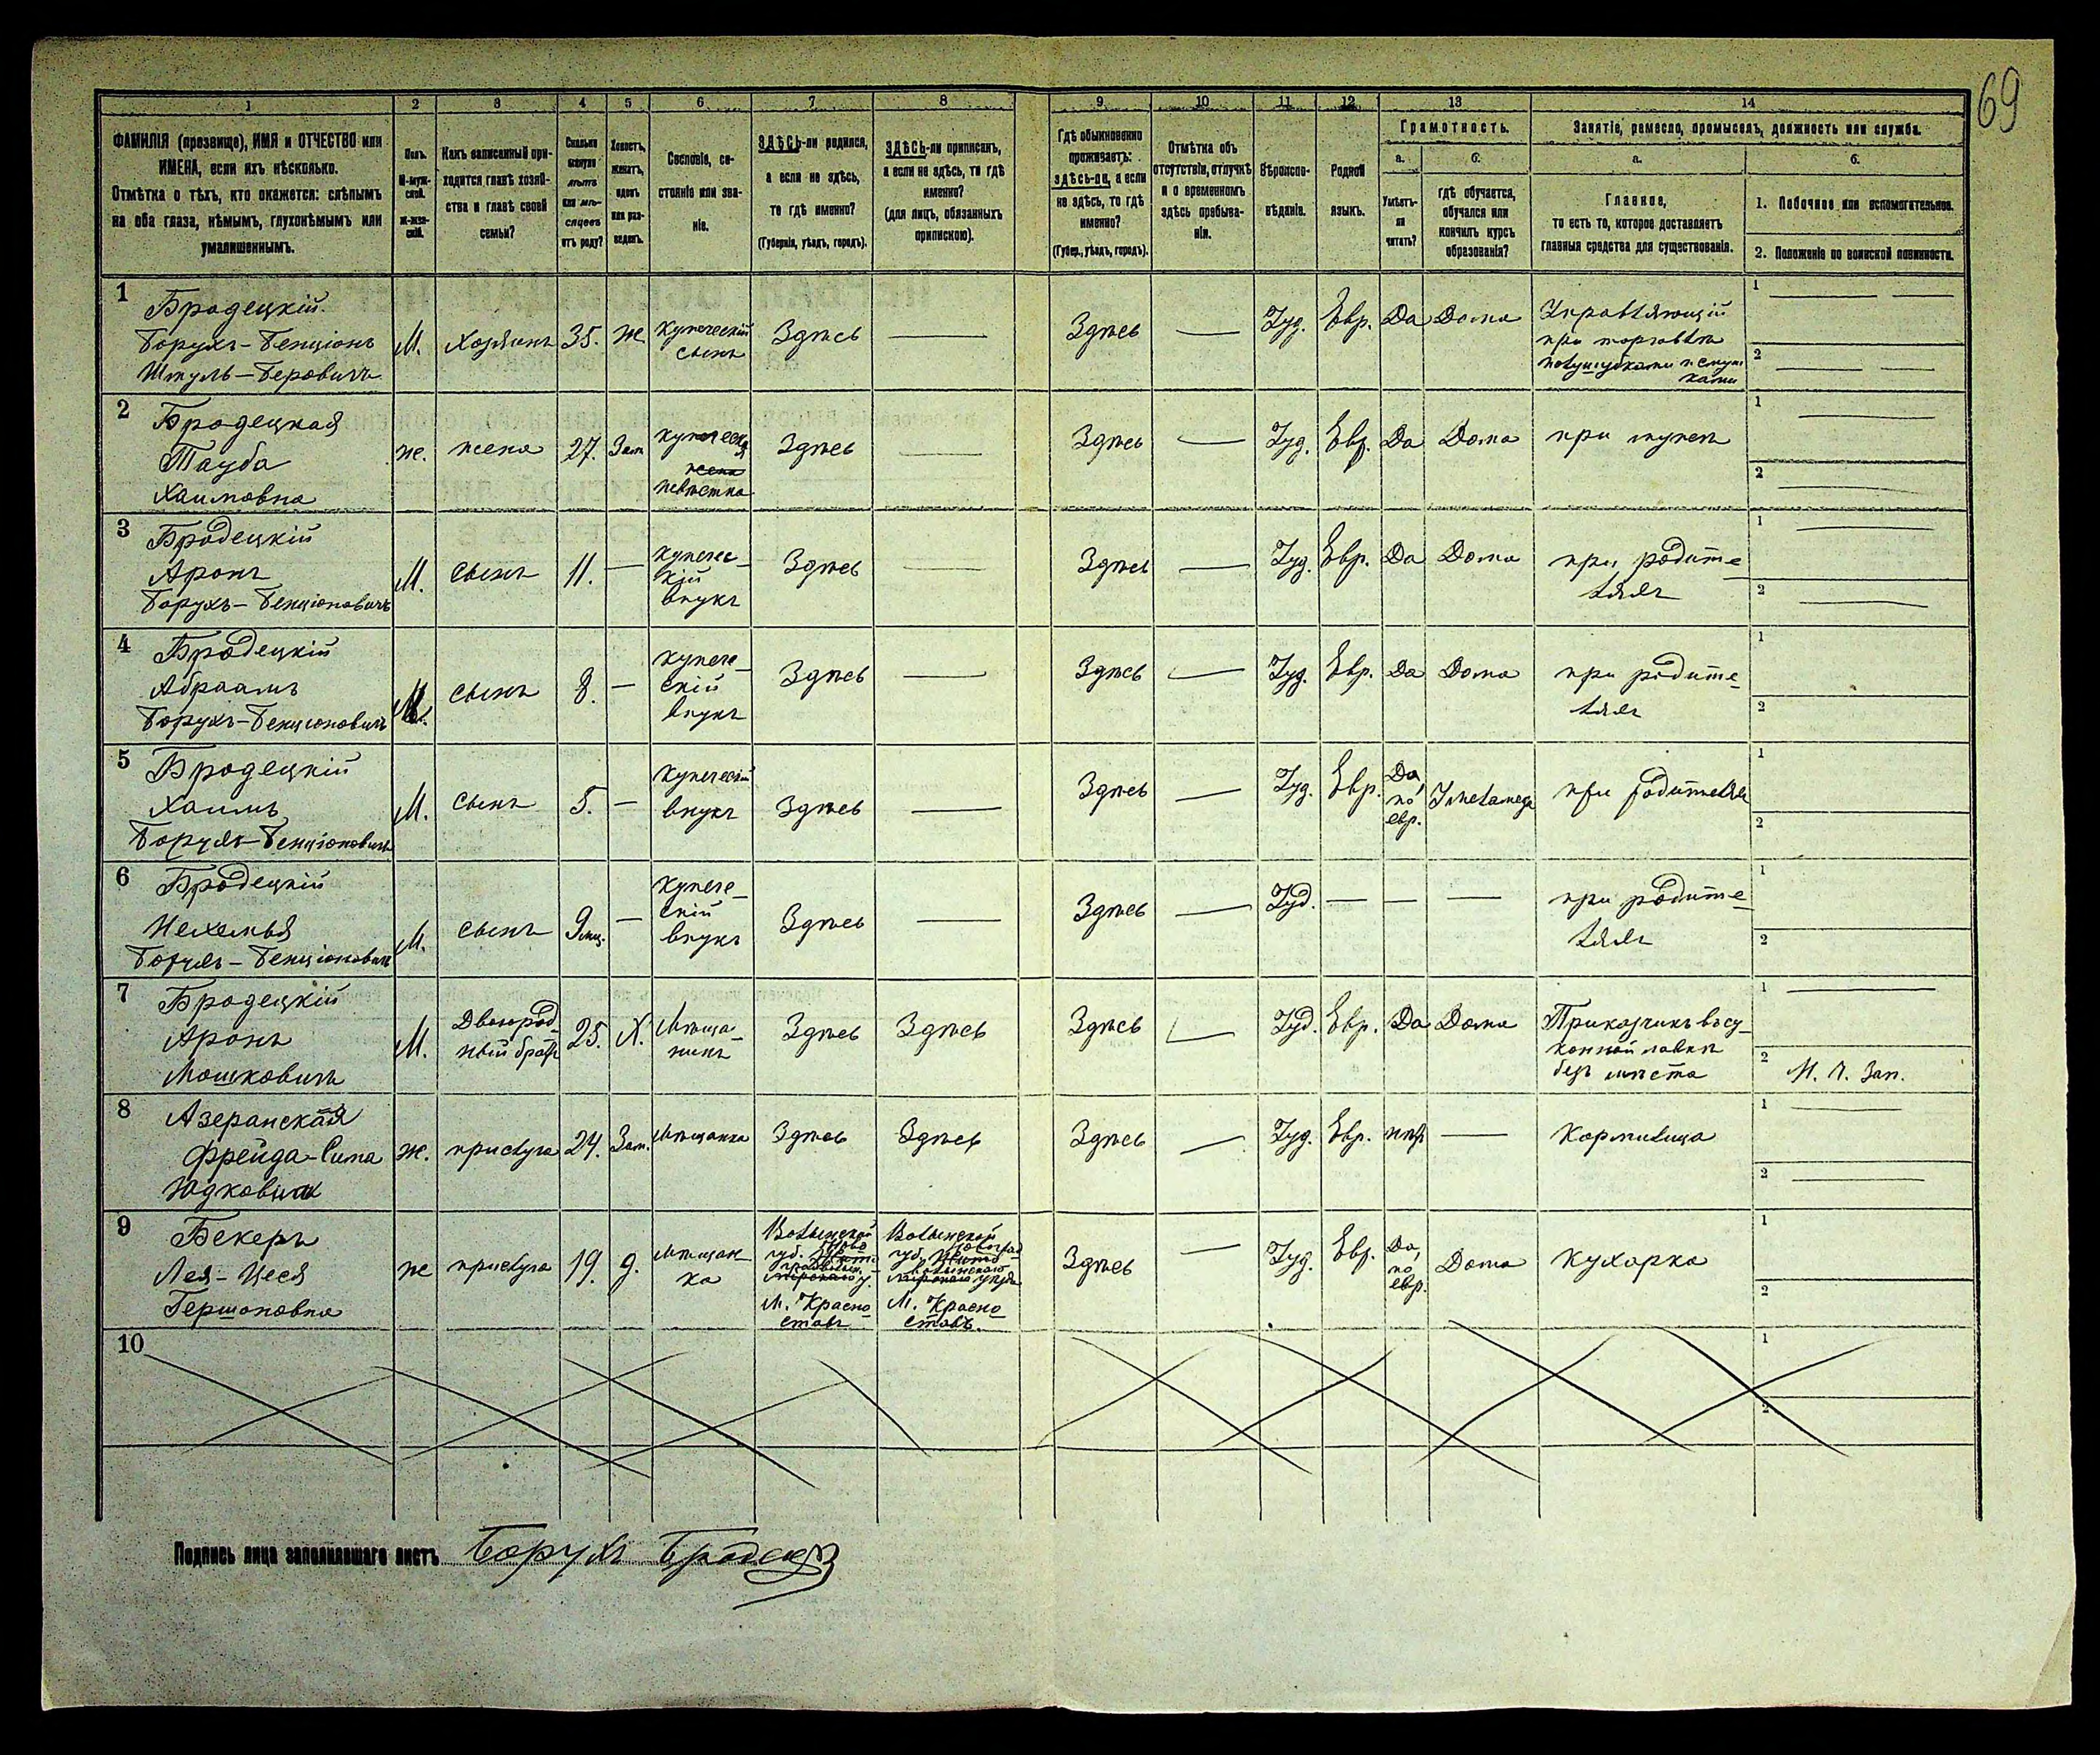 69
1 2 3 4 5 6 7 8 9 10 11 12 13 14
ФАМИЛІЯ (прозвище), ИМЯ и ОТЧЕСТВО или
ИМЕНА, если ихъ нѣсколько.
Отмѣтка о тѣхъ, кто окажется: слѣпымъ
на оба глаза, нѣмымъ, глухонѣмымъ или
умалишеннымъ.
Полъ.
М-муж-
ской.
Ж-жен-
скій.
Какъ записанный при-
ходится главѣ хозяй-
ства и главѣ своей
семьи?
Сколько
минуло
лѣтъ
или мѣ-
сяцевъ
отъ роду?
Холостъ,
женатъ,
вдовъ
или раз-
веденъ.
Сословіе, со-
стояніе или зва-
ніе.
ЗДѢСЬ-ли родился,
а если не здѣсь,
то гдѣ именно?
(Губернія, уѣздъ, городъ).
ЗДѢСЬ-ли приписанъ,
а если не здѣсь, то гдѣ
именно?
(для лицъ, обязанныхъ
припискою).
Гдѣ обыкновенно
проживаетъ:
здѣсь-ли, а если
не здѣсь, то гдѣ
именно?
(Губер., уѣздъ, городъ).
Отмѣтка объ
отсутствіи, отлучкѣ
и о временномъ
здѣсь пребыва-
ніи.
Вѣроиспо-
вѣданіе.
Родной
языкъ.
Грамотность.
а.
Умѣетъ-
ли
читать?
б.
гдѣ обучается,
обучался или
кончилъ курсъ
образованія?
Занятіе, ремесло, промыселъ, должность или служба.
а.
Главное,
то есть то, которое доставляетъ
главныя средства для существованія.
б.
1. Побочное или вспомогательное.
2. Положеніе по воинской повинности.
1
Бродецкій
Борухъ-Бенціонъ
Шмуль-Беровичъ
М.
Хозяинъ
35.
ж
Купеческій
сынъ
Здѣсь
Здѣсь
Іуд.
Евр.
Да
Дома
Управляющій
при торговлѣ
полушубками
1
2
2
Бродецкая
Тауба
Хаимовна
же.
жена
27.
Зам
купеческая
жена
невѣстка
Здѣсь
Здѣсь
Іуд.
Евр.
Да
Дома
при мужѣ
1
2
3
Бродецкій
Аронъ
Борухъ-Бенціоновичъ
М.
сынъ
11.
купечес-
кій
внукъ
Здѣсь
Здѣсь
Іуд.
Евр.
Да
Дома
при родите-
ляхъ
1
2
4
Бродецкій
Абраамъ
Борухъ-Бенціоновичъ
М.
сынъ
8.
купече-
скій
внукъ
Здѣсь
Здѣсь
Іуд.
Евр.
Да
Дома
при родите-
ляхъ
1
2
5
Бродецкій
Хаимъ
Борухъ-Бенціоновичъ
М.
сынъ
5.
купеческій
внукъ
Здѣсь
Здѣсь
Іуд.
Евр.
Да,
по
евр.
У меламеда
при родителяхъ
1
2
6
Бродецкій
Нехемья
Борухъ-Бенціоновичъ
М.
сынъ
9 мѣс.
купече-
скій
внукъ
Здѣсь
Здѣсь
Іуд.
при родите-
ляхъ
1
2
7
Бродецкій
Аронъ
Мошковичъ
М.
Двоюрод-
ный братъ
25.
Х.
Мѣща-
нинъ
Здѣсь
Здѣсь
Здѣсь
Іуд.
Евр.
Да
Дома
Приказчикъ въ су-
конной лавкѣ
безъ мѣста
1
2
8
Азеранская
Фрейда-Сима
ж.
прислуга
24.
Зам.
мѣщанка
Здѣсь
Здѣсь
Здѣсь
Іуд.
Евр.
нѣтъ
Кормилица
1
2
9
Бекеръ
Лея-Цеся
Гершоновна
ж
прислуга
19.
д.
мѣщан-
ка
Волынской
губ.
М. Красно-
ставъ
Волынской
губ.
М. Красно-
ставъ.
Здѣсь
Іуд.
Евр.
Да,
по
евр.
Дома
Кухарка
1
2
10
1
2
Подпись лица заполнявшаго листъ Борухъ